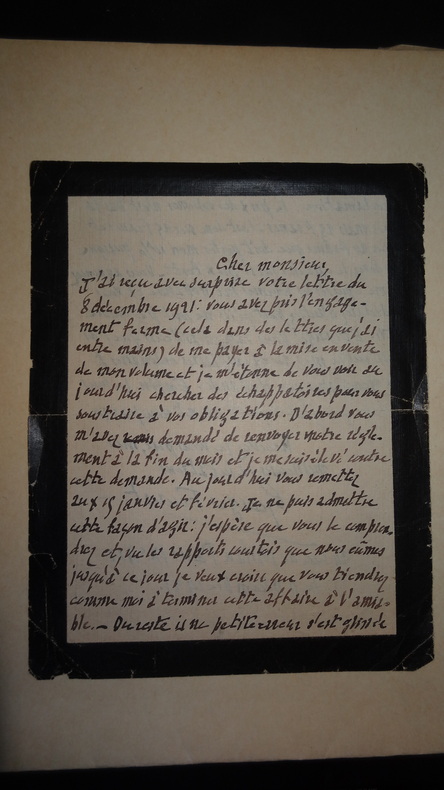 Cher monsieur,
J'ai reçu avec surprise votre lettre du
8 décembre 1921: vous avez pris l'engage-
ment ferme (cela dans des lettres que j'ai
entre mains) de me payer à la mise en vente
de mon volume et je m'étonne de vous voir au
jourd'hui chercher des échappatoires pour vous
soustraire à vos obligations. D'abord vous
m'avez demandé de renvoyer notre règle-
ment à la fin du mois et je me suis élevé contre
cette demande. Aujourd'hui vous remettez
aux 15 janvier et février. Je ne puis admettre
cette façon d'agir: j'espère que vous le compren-
drez et, vu les rapports courtois que nous eûmes
jusqu'à ce jour je veux croire que vous tiendrez
comme moi à terminer cette affaire à l'amia-
ble. — Du reste une petite erreur s'est glissée